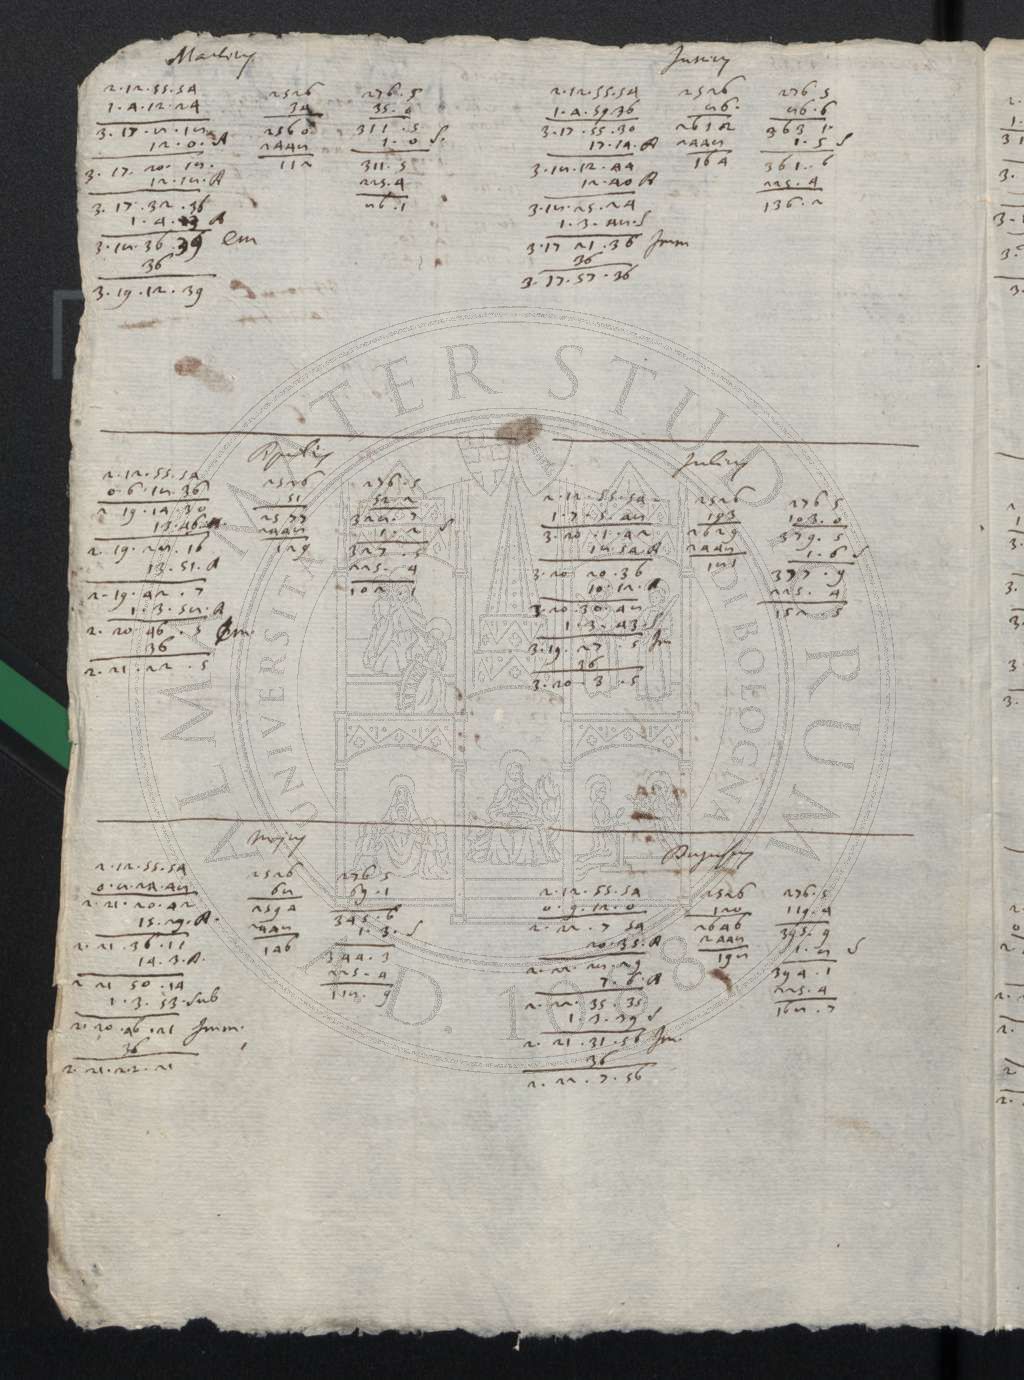 Martius
2.12.55.54
1.4.12.24
3.17.8.18
12.0.A
3.17.20.18.
12.18.A
3.17.32.36
1.4.3 A
3.18.36.39
36
3.19.12.39
2526
34
2560
2448
112
276.5
35.0
311.5
1.0 S.
311.5
225.4
86.1
Junius
2.12.55.54
1.4.59.36
3.17.55.30
17.14.A
3.18.12.44
12.40 A
3.18.25.24
1.3.48.S
3.17 21.36 Imm
36
3.17.57.36
2526
86.
2612
2448
164
276.5
86.6
363 1.
1.5 S
361.6
225.4
136.2
Aprilis
2.12.55.54
0 6.18.36
2 19.14.30
13.46.A.
2.19.28.16
13.51.A
2.19.42.7
1.3.58.A
2.20 46.5 Em.
36
2.21.22.5
2526
51
2577
2448
129
276.5
52.2
328.7
1.2 S
327.5
225.4
102.1
Julius
2.12.55.54
1.7.5.48
3.20.1.42
18.54 A
3.20 20.36
10.12.A
3.20.30.48
1.3.43.S
3.19.27.5 Im
36
3.20.3.5
2526
103
2629
2448
181
276 5
103.0
379.5
1.6 S
377.9
225.4
152.5
Majus
2.12.55.54
0.8.24.48
2.21.20.42
15.29.A.
2.21.36.11
14.3.A.
2 21 50.14
1.3.53.Sub
2.20.46.21 Imm.
36
2.21.22.21
2526
68
2594
2448
146
276.5
69.1
345.6
1.3.S
344.3
225.4
118.9
Augustus
2.12.55.54
0.9.12.0
2.22.7 54
20.35.A
2.22.28.29
7.6.A
2.22.35.35
1.3.39 S
2.21.31.56 Im.
36
2.22.7.56
2526
120
2646
2448
198
276.5
119.4
395.9
1.8 S
394.1
225.4
168.7
ALMA MATER STUDIORUM
UNIVERSITÀ DI BOLOGNA
A.D. 1088